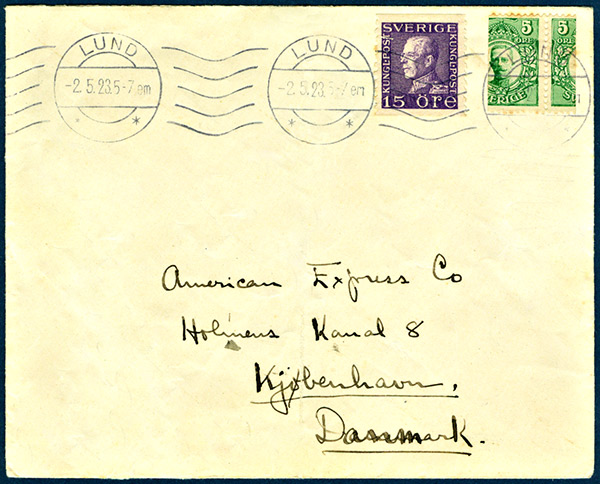 LUND
-2.5.23.5-7 em
LUND
-2.5.23.5-7 em
SVERIGE
KUNGL.POST
KUNGL.POST
15 ÖRE
5 5
ÖRE ÖRE
American Express Co
Holmens Kanal 8
Kjøbenhavn.
Danmark.